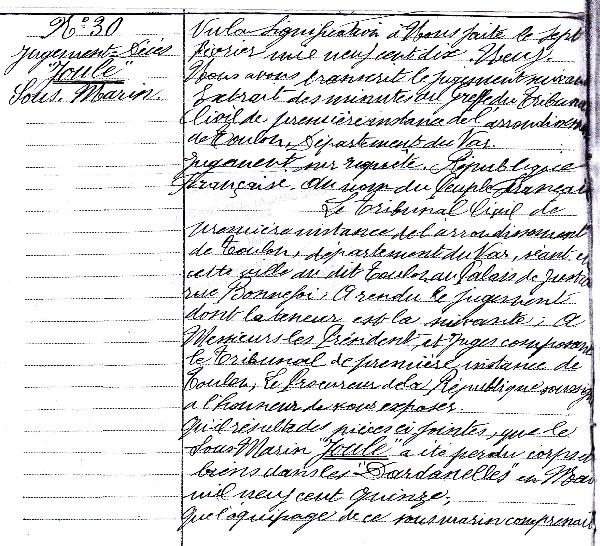 N° 30
Jugement-Décès
"Joule"
Sous-Marin.
Vu la signification à Nous faite le sept
février mil neuf cent dix-Neuf.
Nous avons transcrit le jugement suivant
Extrait des minutes du Greffe du Tribunal
Civil de première instance de l'arrondissem
de Toulon, Département du Var.
Jugement sur requête. République
Française. Au nom du Peuple Français
Le Tribunal Civil de
première instance de l'arrondissement
de Toulon, département du Var, séant en
cette ville du dit Toulon, au Palais de Justice
rue Bonnefoi; A rendu le jugement
dont la teneur est la suivante; A
Messieurs les Président et Juges composant
le Tribunal de première instance de
Toulon, Le Procureur de la République soussign
a l'honneur de vous exposer.
Qu'il résulte des pièces ci jointes, que le
Sous-Marin "Joule" a été perdu corps et
biens dans les "Dardanelles" en Mai
mil neuf cent quinze,
Que l'équipage de ce sous marin comprenait